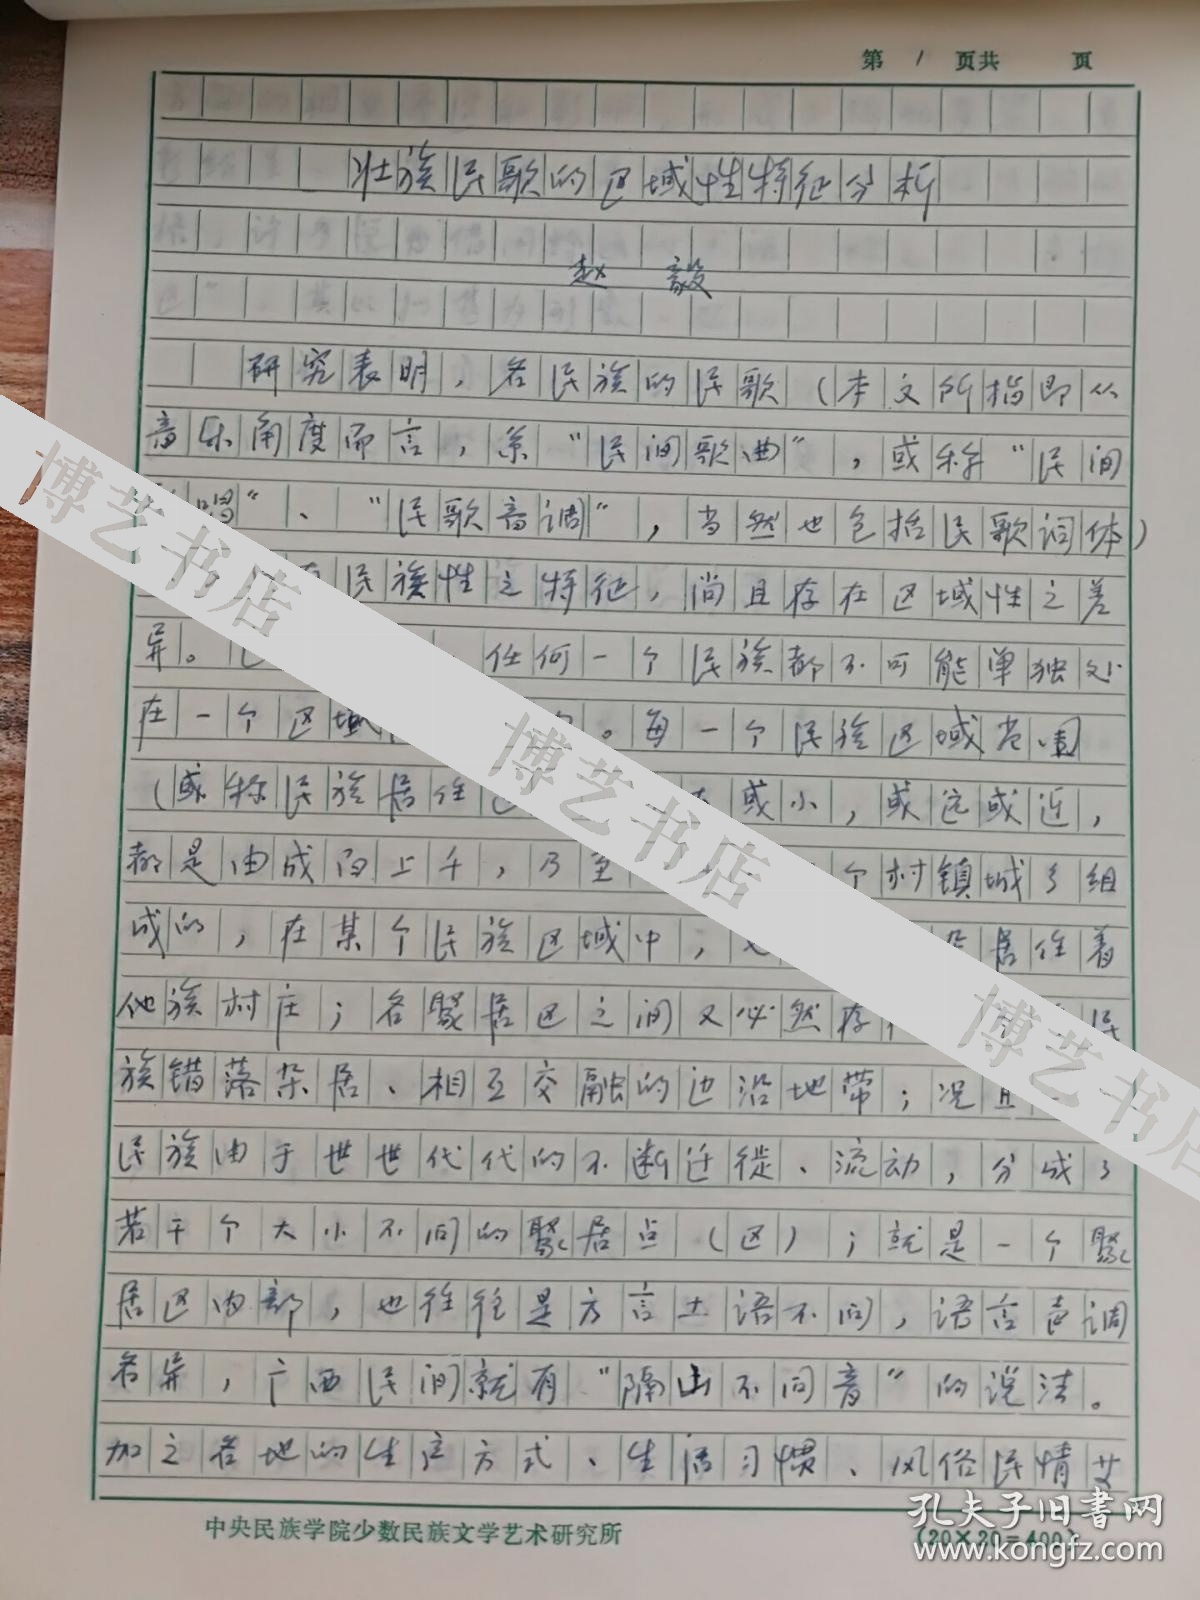 第 1 页共 页
壮族民歌的区域性特征分析
赵 毅
研究表明，各民族的民歌（本文所指即从
音乐角度而言，系“民间歌曲”，或称“民间
唱”、“民歌音调”，当然也包括民歌词体）
民族性之特征，尚且存在区域性之差
异。任何一个民族都不可能单独处
在一个区域。每一个民族区域范围
（或称民族居住或小，或远或近，
都是由成百上千，乃至个村镇城乡组
成的，在某个民族区域中，居住着
他族村庄；各聚居区之间又必然存民
族错落杂居、相互交融的边沿地带；况且
民族由于世世代代的不断迁徙、流动，分成了
若干个大小不同的聚居点（区）；就是一个聚
居区内部，也往往是方言土语不同，语言声调
各异，广西民间就有“隔山不同音”的说法。
加之各地的生产方式、生活习惯、风俗民情艾
中央民族学院少数民族文学艺术研究所
（20×20=400）
博艺书店
博艺书店
博艺书店
孔夫子旧书网
www.kongfz.com